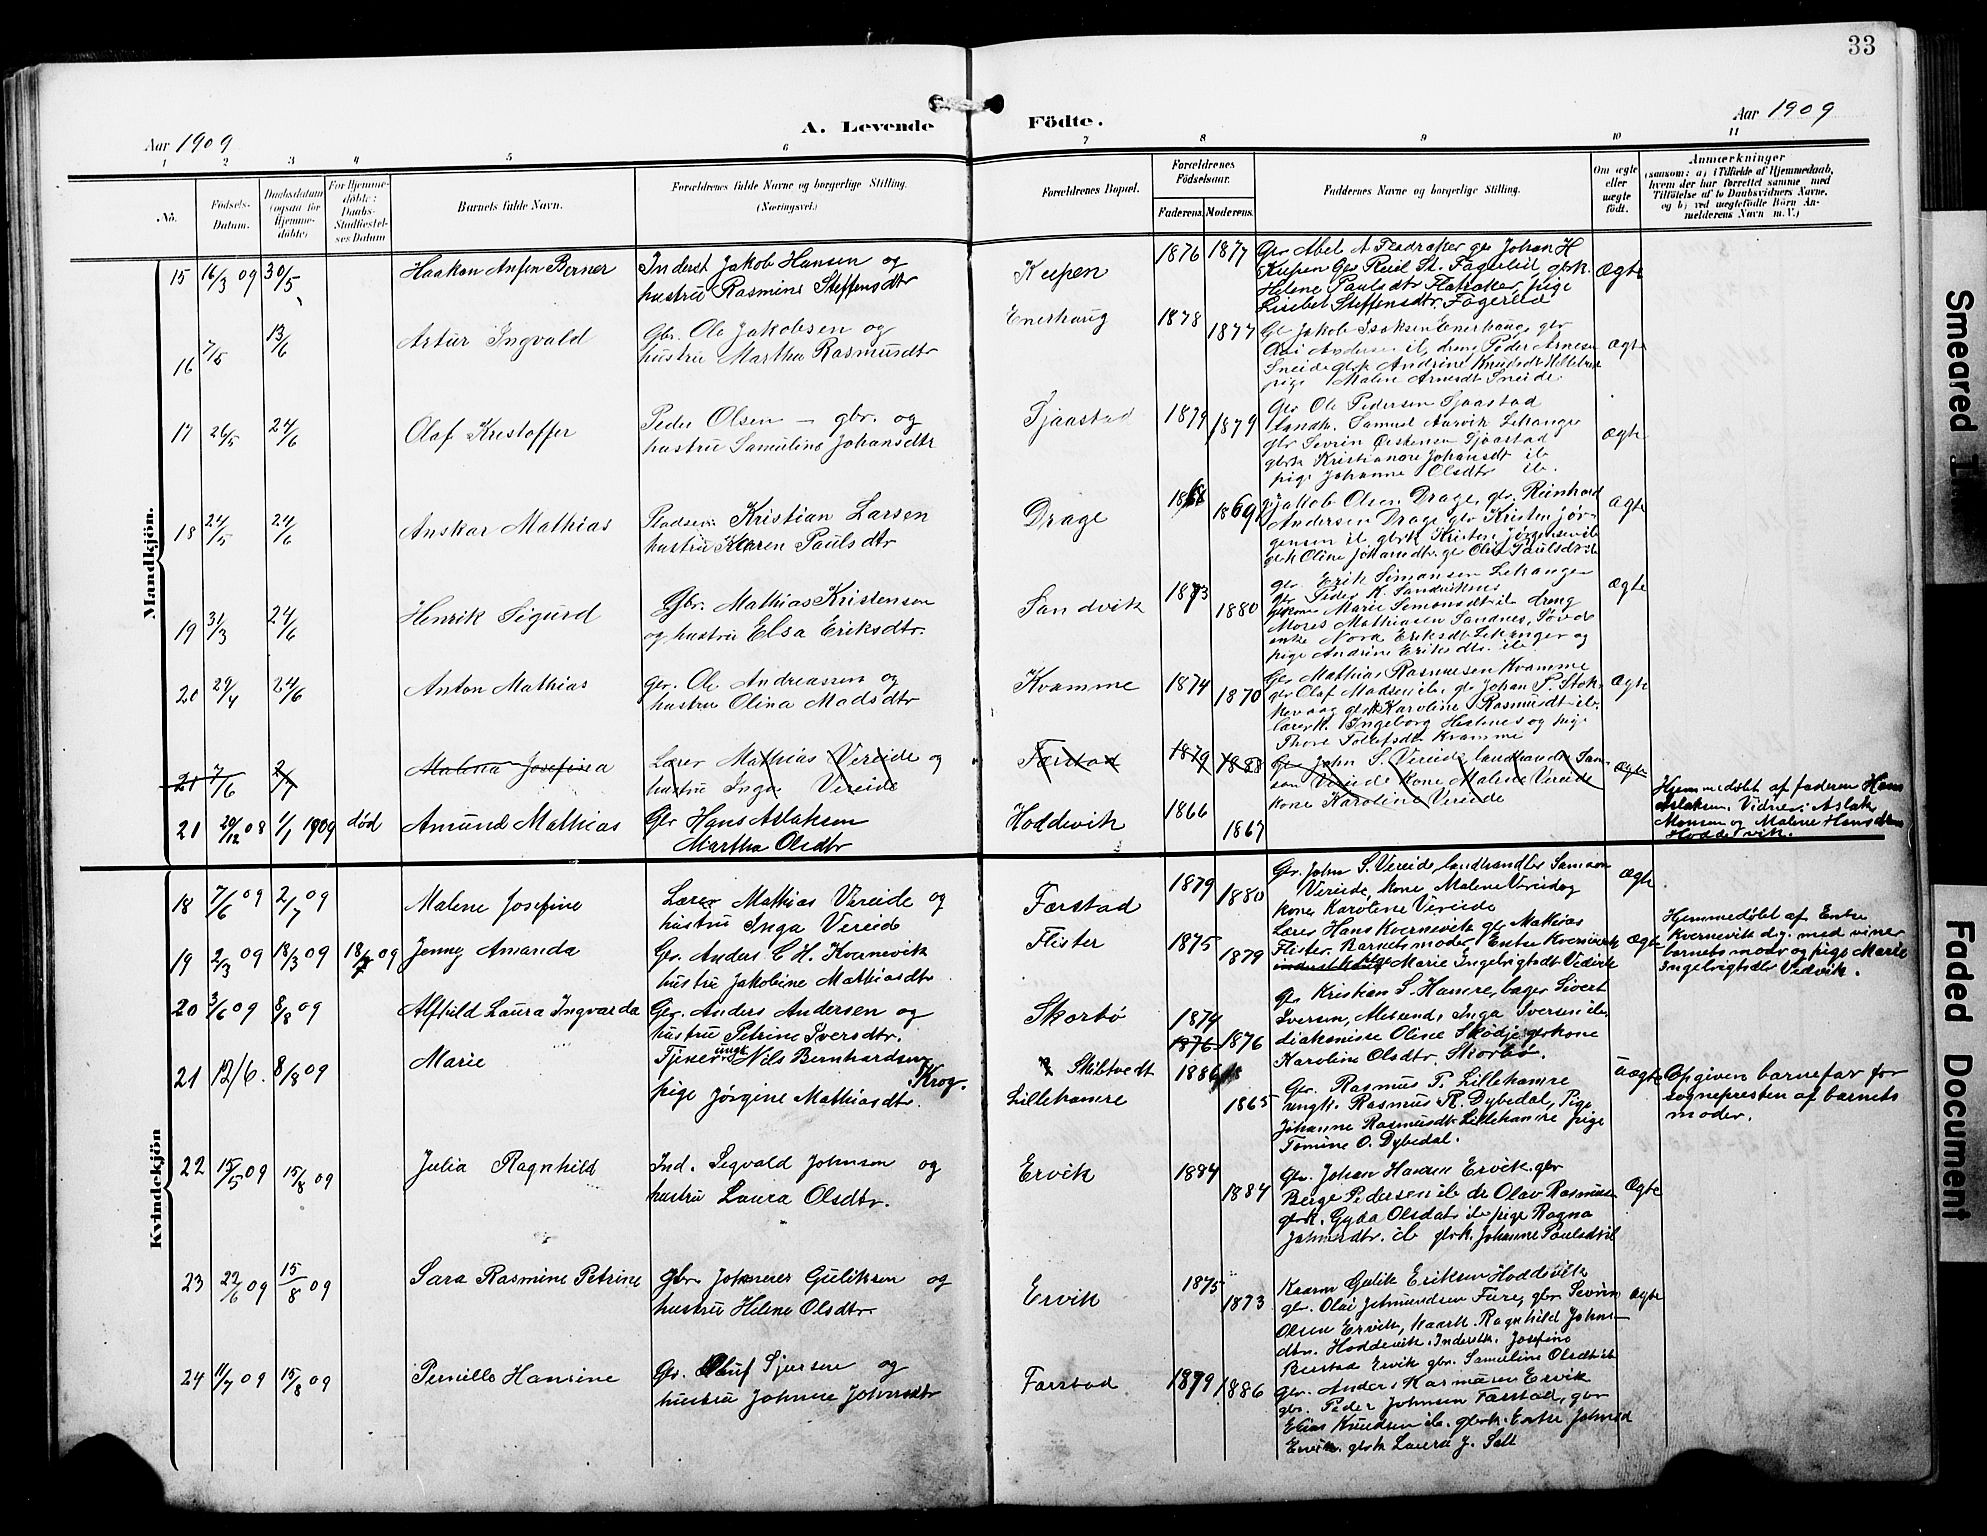 33
Aar 1909
A. Levende Födte.
Aar 1909
1 2 3 4 5 6 7 8 9 10 11
No. Födsels-Datum. Daabsdatum (ogsaa for Hjemme-döbte) For Hjemme-döbte: Daabs-Stadfæstel-ses Datum Barnets fulde Navn. Forældrenes fulde Navne og borgerlige Stilling. (Næringsvei.) Forældrenes Bopæl. Forældrenes Födselsaar. Faderens. Moderens. Faddernes Navne og borgerlige Stilling. Om ægte eller uægte födt.
Anmærkninger
(saasom: a) i Tilfælde af Hjemmedaab,
hvem der har forrettet samme, med
Tilföielse af to Daabsvidners Navne,
og b) ved uægtefödte Börn An-
melderens Navn m. V.)
Mandkjön.
15 16/3 09 30/5 Haakon Anfin Berner Inderst Jakob Hansen og
hustru Rasmine Steffensdtr
Kupen 1876 1877 Gbr Abel A Fladraker gbr Johan H
Kupen Gbr St. Fagerlid gbrk.
Helene Paulsdtr Flatraker, pige
Lisebet Steffensdtr. Fagerli
ægte
16 7/5 13/6 Artur Ingvald Gbr. Ole Jakobsen og
hustru Martha Rasmusdtr
Enerhaug 1878 1877 Gbr Jakob Isaksen Enerhaug gbr
Andersen il, dreng Peder Arnesen
gbrk Andrine Knudsdt
pige Malene Arnesdt
ægte
17 26/5 24/6 Olaf Kristoffer Peder Olsen – gbr. og
hustru Samuline Johansdtr
Tjaastad 1879 1879 Gbr Ole Pedersen Tjaastad
Landh. Samuel Aarvik Lekanger
gbr Sevrin Tjaastad
gbrk Kristianne Johansdt ib
pige Johanne Olsdtr ib.
ægte
18 24/5 24/6 Anskar Mathias Pladsm: Kristian Larsen
hustru Karen Paulsdtr
Drage 1868 1869 Jakob Olsen Drage, gbr. Reinhard
Andersen Drage gbr Kristen Jør-
gensen il gbrk Kristen Jørgensen ib
gbrk Oline Johansdtr. Paulsdtr
ægte
19 31/3 24/6 Henrik Sigurd Gbr. Mathias Kristensen
og hustru Elsa Eriksdtr.
Sandvik 1873 1880 gbr. Erik Simonsen Lekanger
gbr Peder K. Sandviknes
gbkone Marie Simonsdt il dreng
Mathiasen Sandnes,
enke Nora Eriksdt Lekanger og
pige Andrine Eriksdtr. ib.
ægte
20 29/4 24/6 Anton Mathias Gbr. Ole Andreassen og
hustru Olina Madsdtr
Kvamme 1874 1870 Gbr Mathias Rasmusen Kvamme
gbr Olaf Madsen ib. gbr Johan P. Stok-
kevaag gbrk Karoline Rasmusdt ib.
lærerk. Ingeborg og pige
Kvamme
ægte
21 7/6 2/7 Malena Josefina Lærer Mathias Vereide og
hustru Inga Vereide
Færstad 1879 1888 Gbr John S. Vereide landhandler Sam-
son Vereide kone Malene Vereide
kone Karoline Vereide
ægte
21 29/12 08 1/1 1909 død Amund Mathias Gbr Hans Aslaksen
Martha Olsdtr
Hoddevik 1866 1867
Hjemmedøbt af faderen Hans
Aslaksen. Vidner: Aslak
Monsen og Malene Hansdtr
Hoddevik.
Kvindekjön
18 7/6 09 2/7 09 Malene Josefine Lærer Mathias Vereide og
hustru Inga Vereide
Færstad 1879 1880 Gbr. John S. Vereide, landhandler Samson
Vereide, kone Malene Vereide og
kone Karoline Vereide
ægte
19 2/3 09 18/3 09 18/7 09 Jenny Amanda Gbr. Anders C H. Kvernevik
hustru Jakobine Mathiasdtr
Flister 1875 1879 Lærer Hans Kvernevik gbr Mathias
Flister. Barnets moder, Enke Kvernevik
pige Marie Ingebrigtsdt Vedvik
ægte
Hjemmedøbt af Enke
Kvernevik dg. med vidner
barnets moder og pige Marie
Ingebrigtsdtr Vedvik.
20 3/6 09 8/8 09 Alfhild Laura Ingvarda Gbr. Anders Andersen og
hustru Petrine Iversdtr.
Skorbø 1874 1876 1876 Gbr Kristian S. Hamre, bager Sivert
Iversen, Alesund, Inga Iversen ib,
diakonisse Oline Skodje gbrkone
Karoline Olsdtr. Skorbø.
21 12/6. 8/8 09 Marie Tjener ungk Nils Bernhardsen Krog.
pige Jørgine Mathiasdtr.
Skiltvedt
Lillehamre
1886 1865 Gbr. Rasmus P. Lillehamre
ungk. Rasmus R. Dybedal, Pige
Johanne Rasmusdt Lillehamre pige
Tomine O. Dybedal.
uægte
Opgiven barnefar for
sognepresten af barnets
moder.
22 15/5 09 15/8 09 Julia Ragnhild Ind. Sigvald Johnsen og
hustru Laura Olsdtr.
Ervik 1884 1884 Gbr. Johan Hansen Ervik. gbr
Berge Pedersen ib dr Olav Rasmusen
gbrk. Gyda Olsdatr ib pige Ragna
Johnsdtr. ib gbrk. Johanne Paulsdt il
Ægte
23 22/6 09 15/8 09 Sara Rasmine Petrine gbr. Johannes Guliksen og
hustru Helene Olsdtr.
Ervik 1875 1873 Kaarm Gulik Eriksen Hoddevik
gbr. Olai Johnundsen Fure, gbr Sevrin
Olsen Ervik, kaark. Ragnhild Johns-
dtr. Hoddevik. Inderstk. Josefine
Ervik gbr. Samuline Olsdt ib
ægte
24 11/7 09 15/8 09 Pernille Hansine Gbr. Oluf Sjursen og
hustru Johanne Johnsdtr
Færstad 1879 1886 Gbr. Anders Rasmusen Ervik
gbr. Peder Johnsen Færstad, gbr
Elias Knudsen ib. gbrk. Enke Johnsd
Ervik. gbrk Laura J. Salt
Smeared
Faded Document